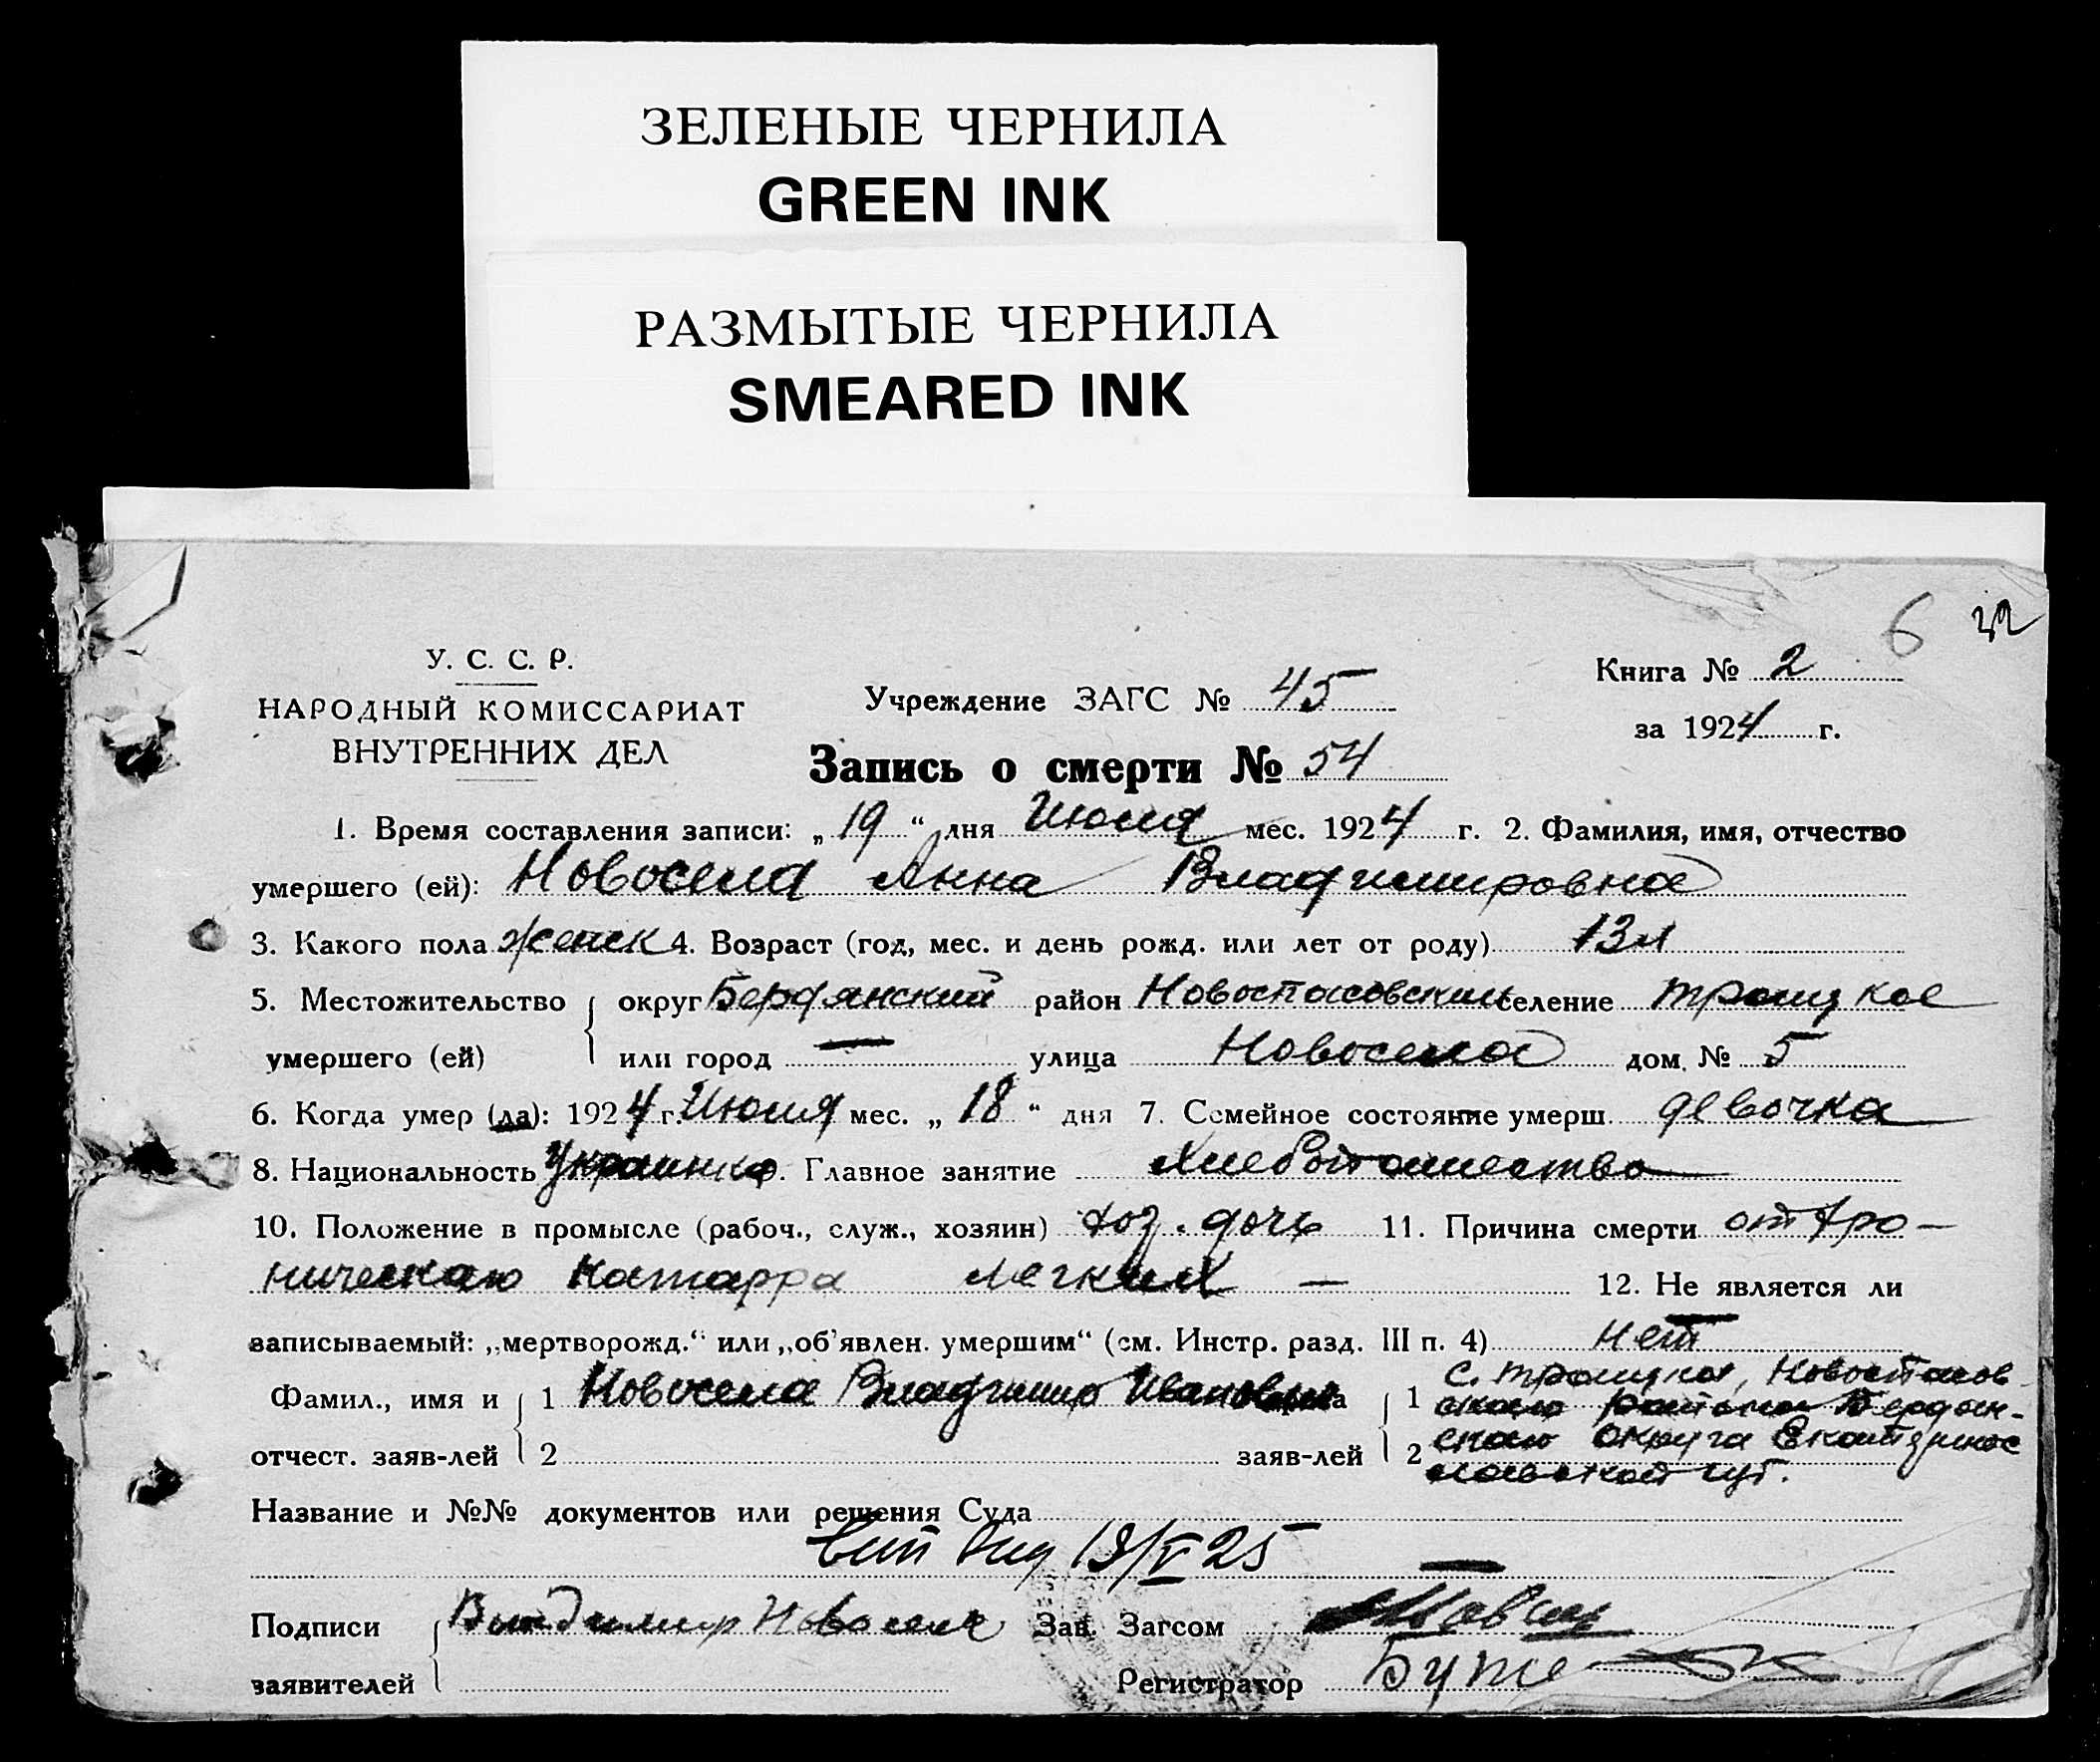 ЗЕЛЕНЫЕ ЧЕРНИЛА
GREEN INK
РАЗМЫТЫЕ ЧЕРНИЛА
SMEARED INK
6
У. С. С. Р.
НАРОДНЫЙ КОМИССАРИАТ
ВНУТРЕННИХ ДЕЛ
Учреждение ЗАГС № 45
Книга № 2
за 1924 г.
Запись о смерти № 54
1. Время составления записи: „19“ дня Июля мес. 1924 г. 2. Фамилия, имя, отчество
умершего (ей): Новосела Анна Владимировна
3. Какого пола женск 4. Возраст (год, мес. и день рожд. или лет от роду) 13 л
5. Местожительство округ Бердянский район Новоспасовский селение Троицкое
умершего (ей) или город — улица Новосела дом. № 5
6. Когда умер (ла): 1924 г. Июля мес. „18“ дня 7. Семейное состояние умерш. девочка
8. Национальность Украинка 9. Главное занятие Хлебопашество
10. Положение в промысле (рабоч., служ., хозяин) хоз. дочь 11. Причина смерти от хро-
нического катарра легких — 12. Не является ли
записываемый: „мертворожд.“ или „об'явлен. умершим“ (см. Инстр. разд. III п. 4) нет
Фамил., имя и 1 Новосела Владимир Иванович 1 с. Троицкое, Новоспасов
ского района Бердян-
отчест. заяв-лей 2 заяв-лей 2 ского округа Екатеринос
лавской губ.
Название и №№ документов или решения Суда
19/V 25
Подписи Владимир Новосела Зав. Загсом
заявителей Регистратор